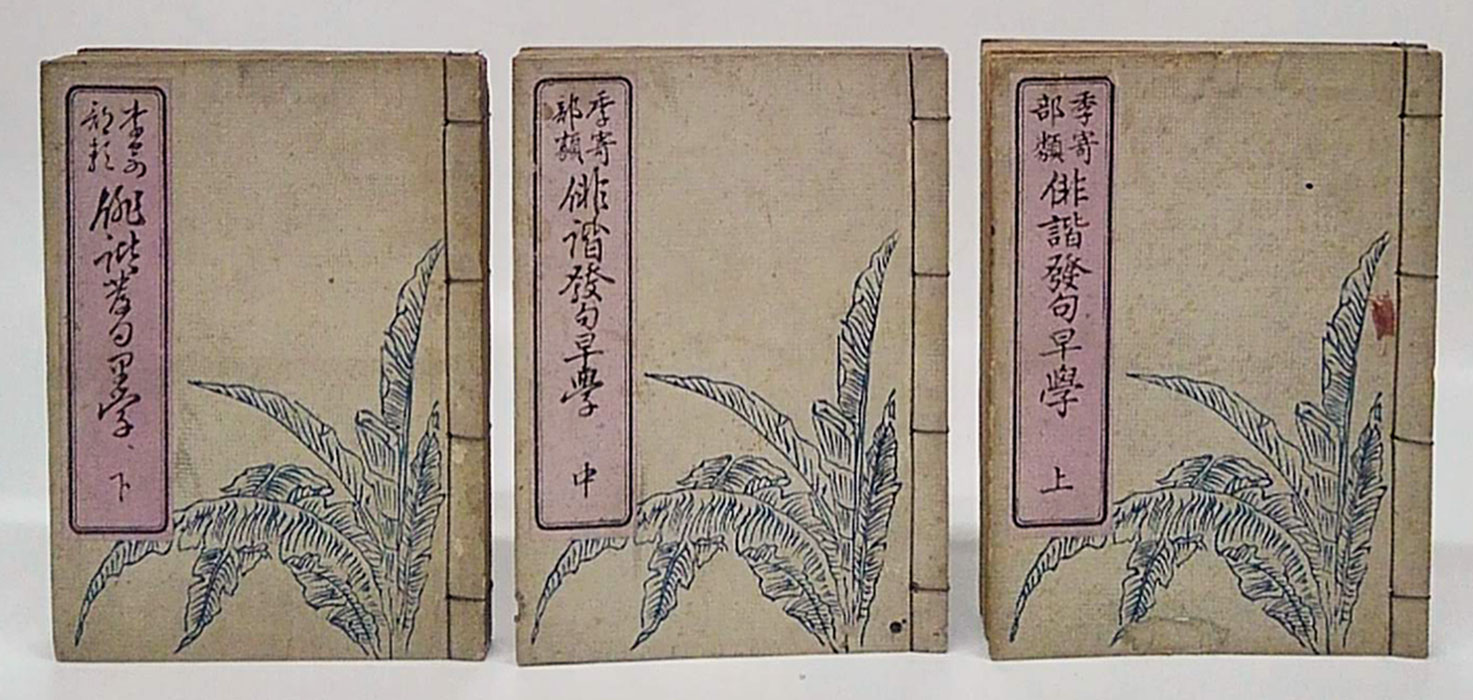 季寄
部類
俳諧發句早學
上
季寄
部類
俳諧發句早學
中
季寄
部類
俳諧發句早学
下